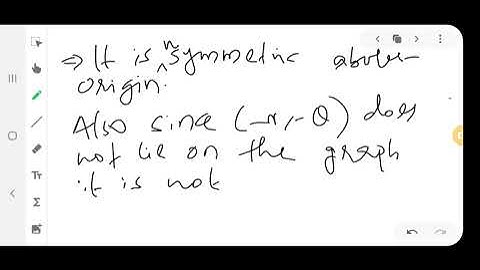 ⇒ It is n symmetric about
origin.
Also since (-r, -θ) does
not lie on the graph
it is not